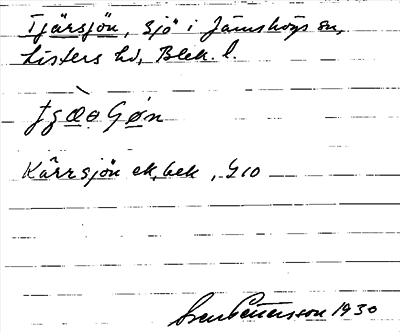 Tjärsjön, sjö i Jämshögs sn,
Listers hd, Blek. l.
Kärrsjön ek.bek, G10
Sven Pettersson 1930